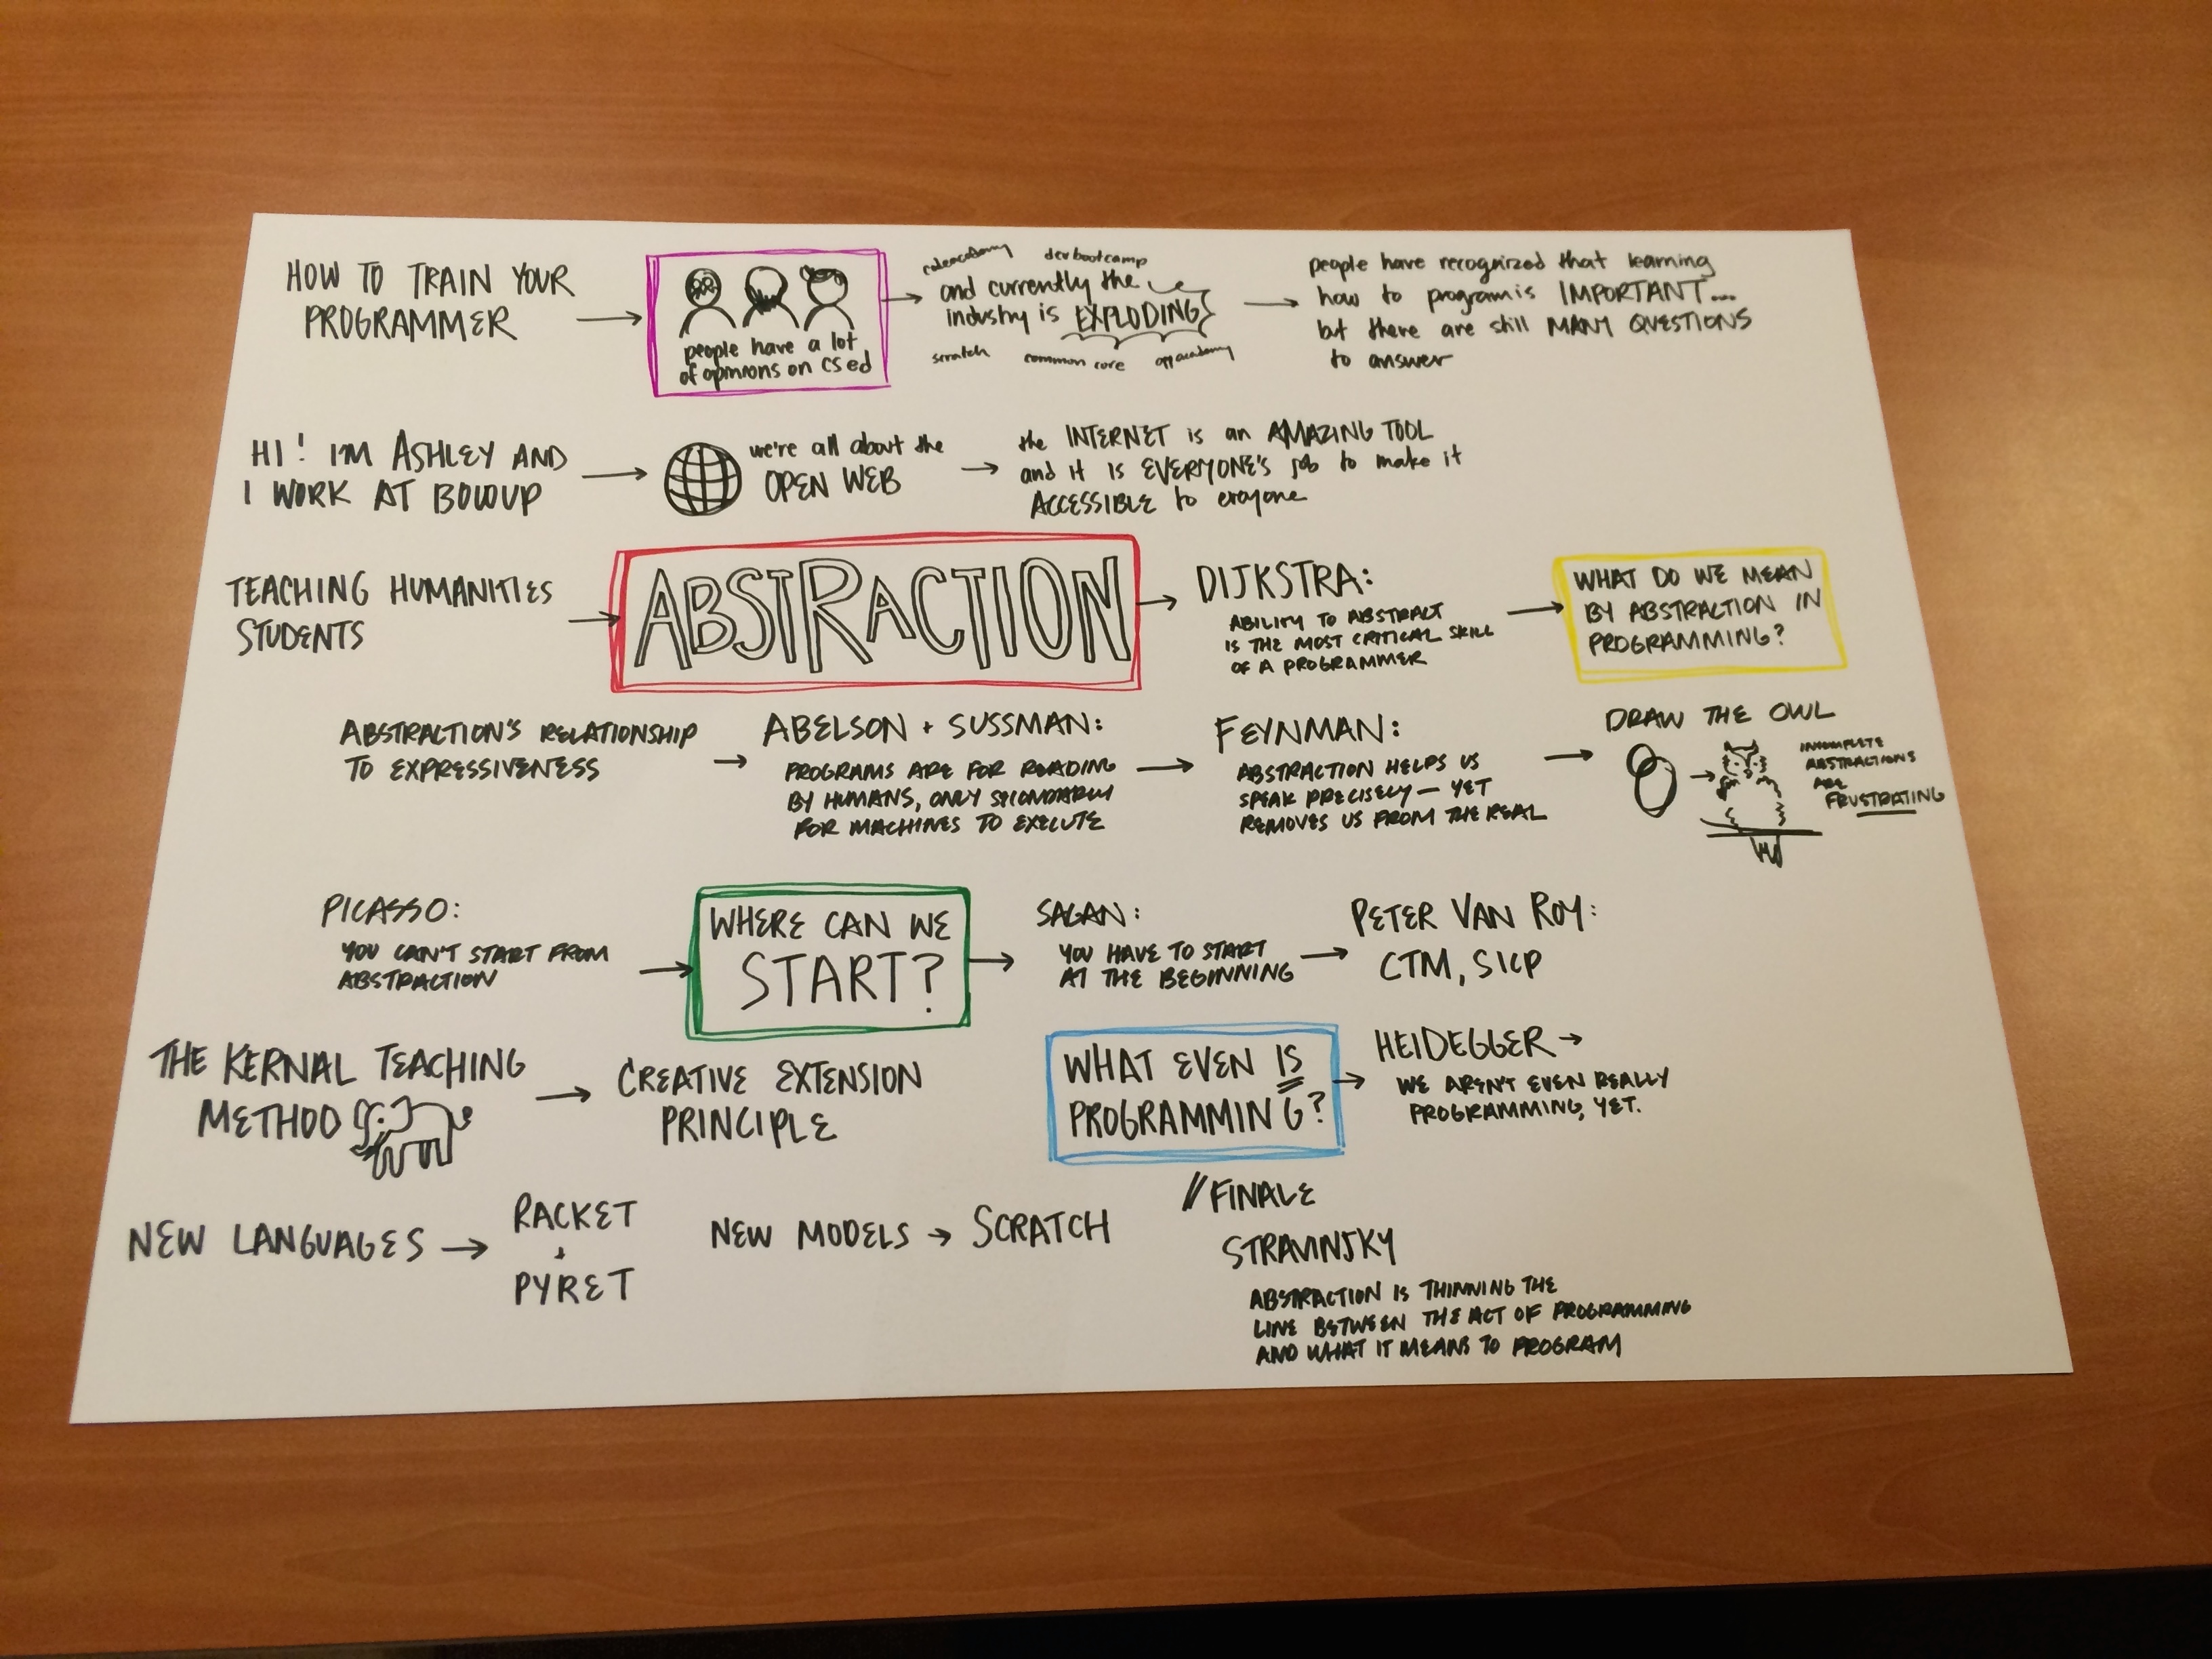 HOW TO TRAIN YOUR
PROGRAMMER
people have a lot
of opinions on cs ed
codecademy devbootcamp
and currently the
industry is EXPLODING
scratch common core appacademy
people have recognized that learning
how to program is IMPORTANT...
but there are still MANY QUESTIONS
to answer
HI! I'M ASHLEY AND
I WORK AT BOCOUP
we're all about the
OPEN WEB
the INTERNET is an AMAZING TOOL
and it is EVERYONE'S job to make it
ACCESSIBLE to eryone
TEACHING HUMANITIES
STUDENTS
ABSTRACTION
DIJKSTRA:
ABILITY TO ABSTRACT
IS THE MOST CRITICAL SKILL
OF A PROGRAMMER
WHAT DO WE MEAN
BY ABSTRACTION IN
PROGRAMMING?
ABSTRACTION'S RELATIONSHIP
TO EXPRESSIVENESS
ABELSON + SUSSMAN:
PROGRAMS ARE FOR READING
BY HUMANS, ONLY SECONDARILY
FOR MACHINES TO EXECUTE
FEYNMAN:
ABSTRACTION HELPS US
SPEAK PRECISELY — YET
REMOVES US FROM THE REAL
DRAW THE OWL
INCOMPLETE
ABSTRACTIONS
ARE
FRUSTRATING
PICASSO:
YOU CAN'T START FROM
ABSTRACTION
WHERE CAN WE
START?
SAGAN:
YOU HAVE TO START
AT THE BEGINNING
PETER VAN ROY:
CTM, SICP
THE KERNAL TEACHING
METHOD
CREATIVE EXTENSION
PRINCIPLE
WHAT EVEN IS
PROGRAMMING?
HEIDEGGER →
WE AREN'T EVEN REALLY
PROGRAMMING, YET.
NEW LANGUAGES →
RACKET
+
PYRET
NEW MODELS → SCRATCH
// FINALE
STRAVINSKY
ABSTRACTION IS THINNING THE
LINE BETWEEN THE ACT OF PROGRAMMING
AND WHAT IT MEANS TO PROGRAM